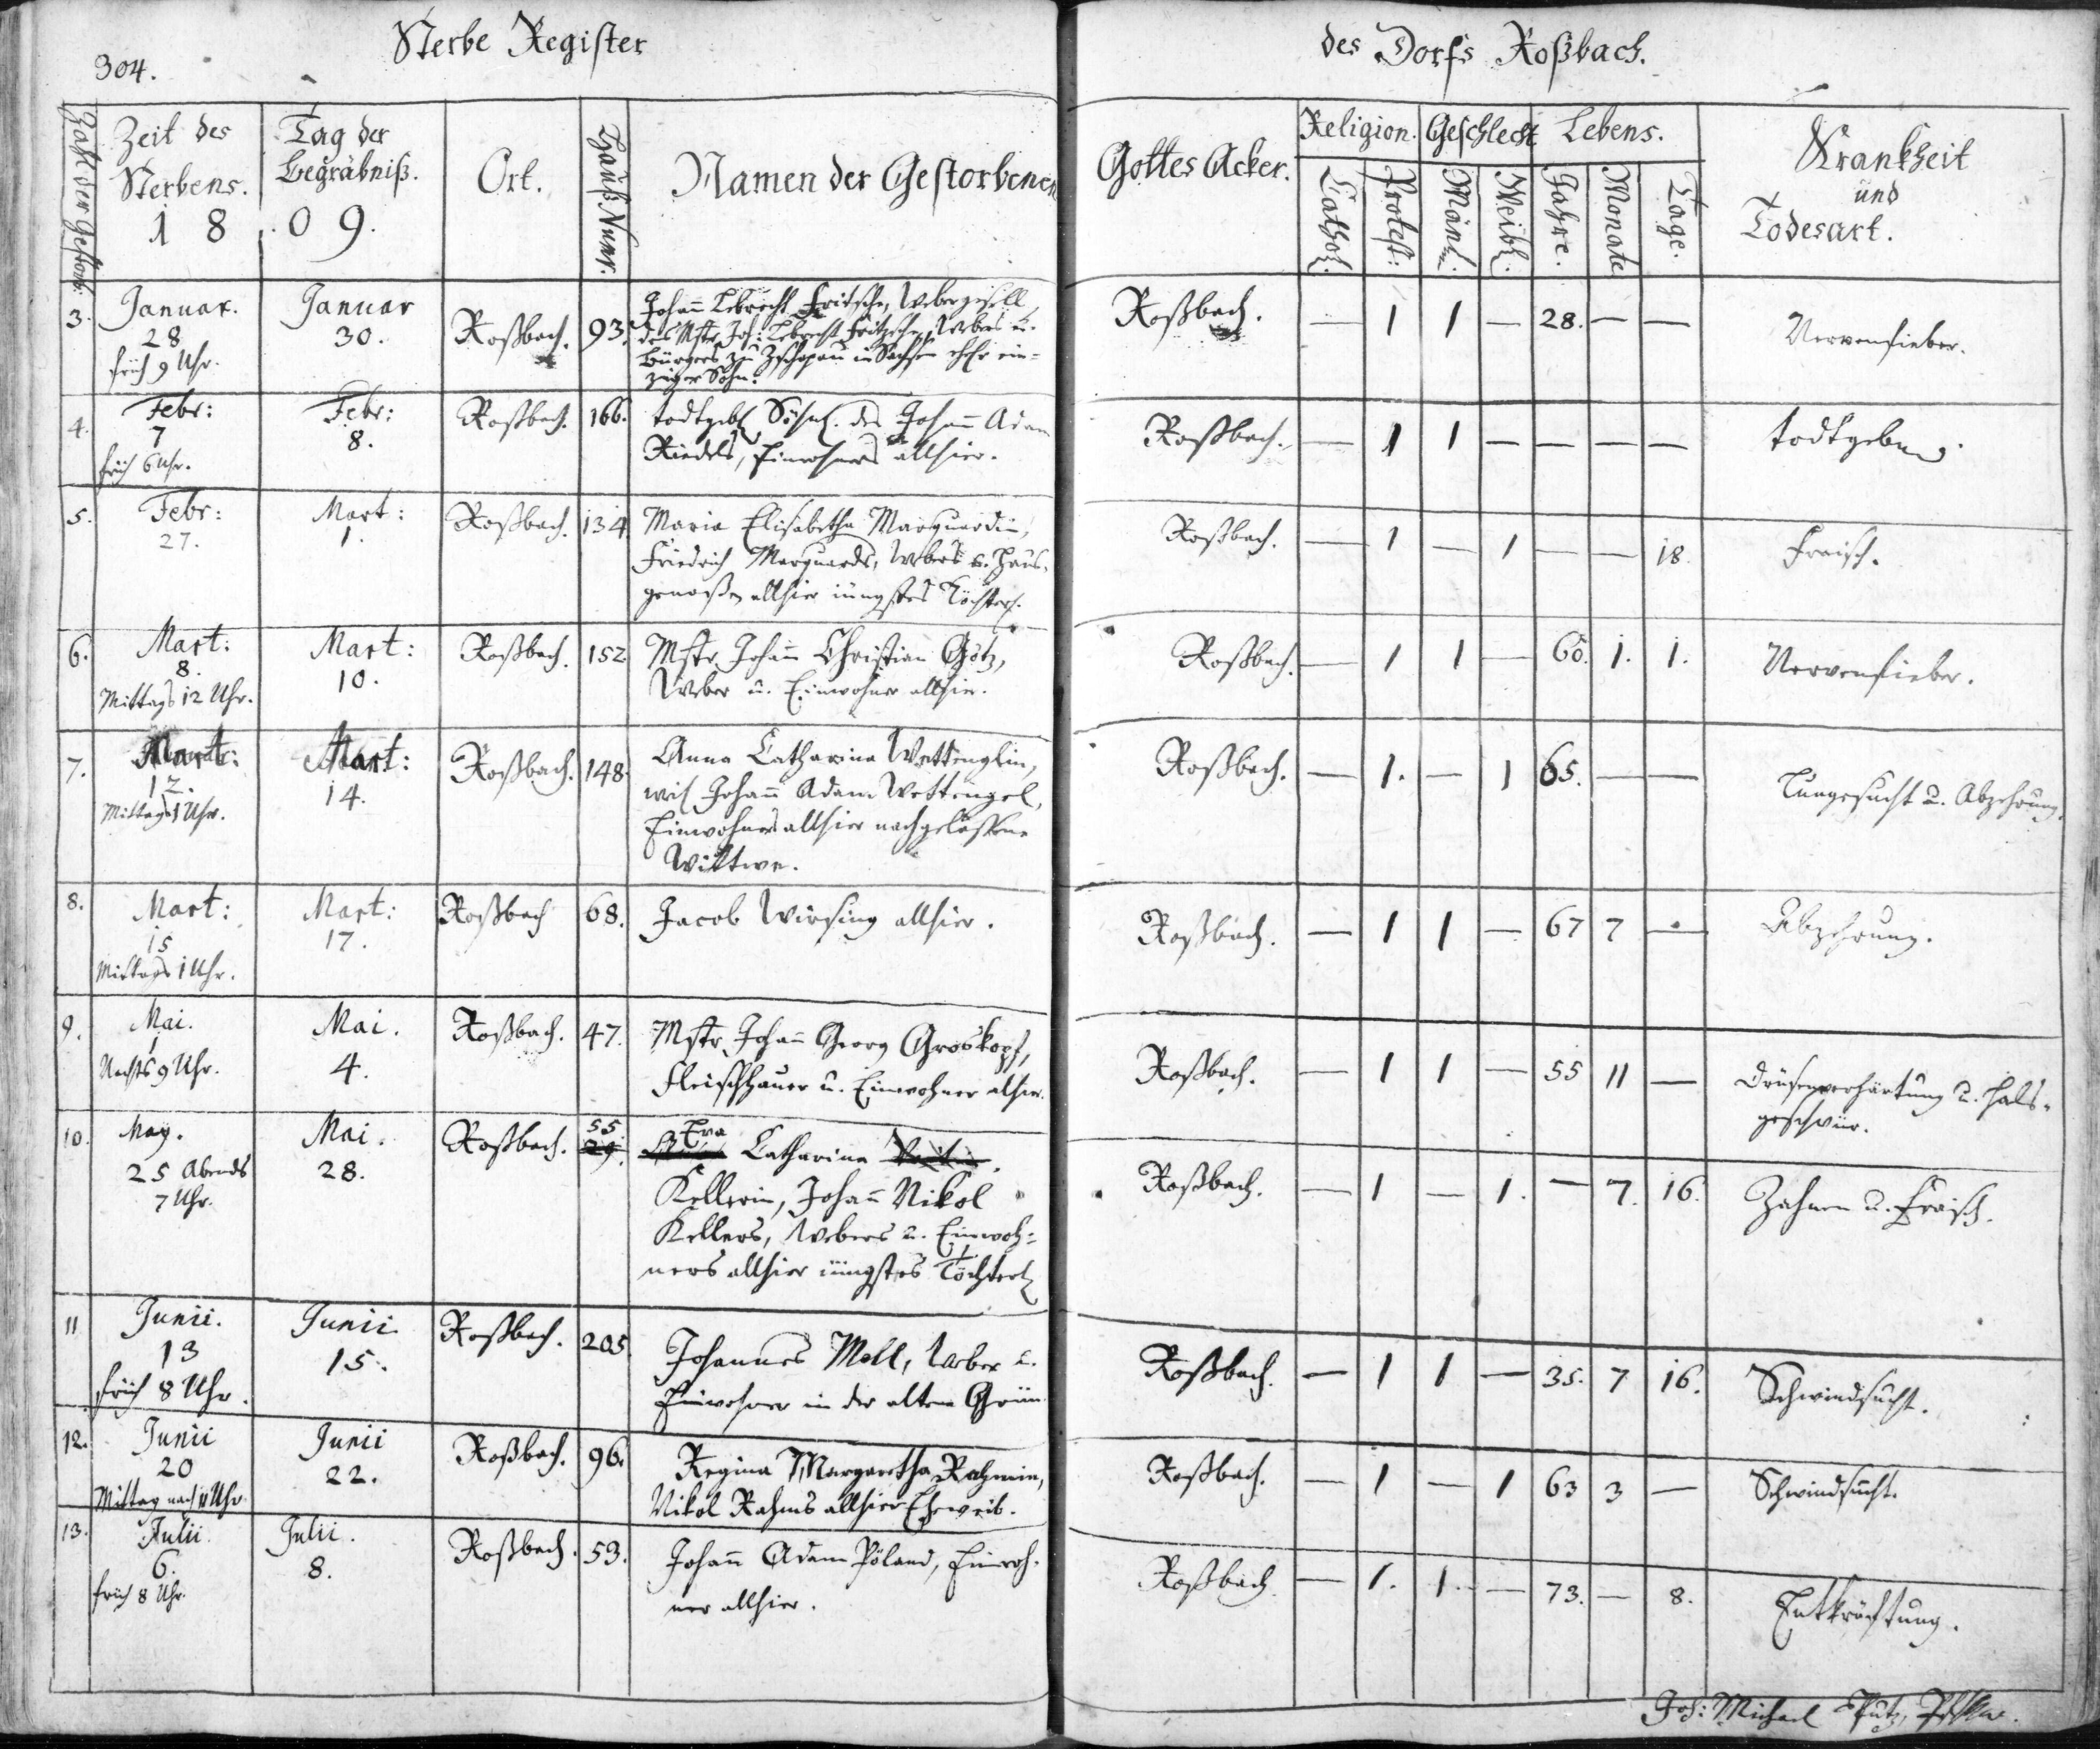 304.
Sterbe Register
des Dorfs Roßbach.
Zahl der Gestorb:
Zeit des Sterbens.
Tag der Begräbniß.
18 09.
Ort.
Hauß Numr.
Namen der Gestorbenen
Gottes Acker.
Religion.
Cathol.
Protest:
Geschlecht
Mänl.
Weibl.
Lebens.
Jahre.
Monate
Tage.
Krankheit
und
Todesart.
3. Januar. 28 früh 9 Uhr. Januar 30. Roßbach. 93.
Johann Lebrecht Fritsche, Webergesell,
des Mstr. Joh: Lebrecht Fritzsche, Webers u.
Bürgers zu Zschopau in Sachsen ehel. ein-
ziger Sohn.
Roßbach. — 1 1 — 28. — — Nervenfieber.
4. Febr: 7 früh 6 Uhr. Febr: 8. Roßbach. 166.
todtgeb. Söhnl. des Johann Adam
Riedels, Einwohners allhier.
Roßbach. — 1 1 — — — — todtgeboren.
5. Febr: 27. Mart: 1. Roßbach. 134
Maria Elisabetha Marquardin,
Friedrich Marquards, Webers u. Haus-
genoßen allhier jüngstes Töchterl.
Roßbach. — 1 — 1 — — 18. Fraisch.
6. Mart: 8. Mittags 12 Uhr. Mart: 10. Roßbach. 152.
Mstr. Johann Christian Götz,
Weber u. Einwohner allhier.
Roßbach. — 1 1 — 60. 1. 1. Nervenfieber.
7. Mart: 12. Mittags 1 Uhr. Mart: 14. Roßbach. 148.
Anna Catharina Wettenglin,
weil. Johann Adam Wettengel,
Einwohners allhier nachgelassene
Wittwe.
Roßbach. — 1. — 1 65. — — Lungesucht u. Abzehrung.
8. Mart: 15 Mittags 1 Uhr. Mart: 17. Roßbach 68.
Jacob Wirsing allhier.
Roßbach. — 1 1 — 67 7 — Abzehrung.
9. Mai. 1 Nachts 9 Uhr. Mai. 4. Roßbach. 47.
Mstr. Johann Georg Groskopf,
Fleischhauer u. Einwohner alhier.
Roßbach. — 1 1 — 55 11 — Drüsenverhärtung u. Hals-
geschwür.
10. May. 25 Abends 7 Uhr. Mai. 28. Roßbach. 55 29.
Eva Catharina
Kellerin, Johann Nikol
Kellers, Webers u. Einwoh-
ners allhier jüngstes Töchterl.
Roßbach. — 1 — 1. — 7. 16. Zahnen u. Fraisch.
11 Junii. 13 früh 8 Uhr. Junii 15. Roßbach. 205
Johannes Moll, Weber u.
Einwohner in der alten Grün.
Roßbach. — 1 1 — 35. 7 16. Schwindsucht.
12. Junii 20 Mittag nach 11 Uhr. Junii 22. Roßbach. 96.
Regina Margaretha Rahmin,
Nikol Rahms allhier Eheweib.
Roßbach. — 1 — 1 63 3 — Schwindsucht.
13. Julii. 6. früh 8 Uhr. Julii. 8. Roßbach. 53.
Johann Adam Pöland, Einwoh-
ner allhier.
Roßbach — 1. 1. — 73. — 8. Entkräftung.
Joh: Michael